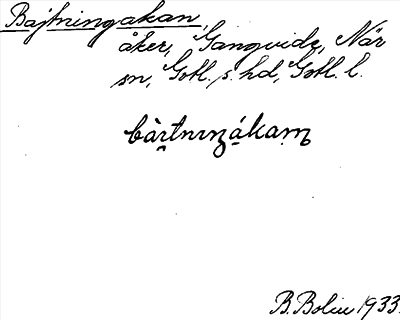 Bajtningakan,
åker, Ganqvide, När
sn, Gotl. s. hd, Gotl. l.
bàɪtnɪŋákam
B. Bolin 1933.